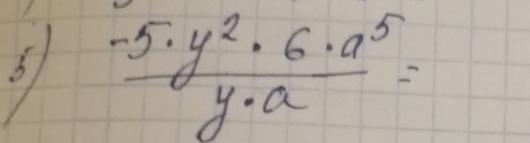 5) (-5 · y² · 6 · a⁵) / (y · a) =